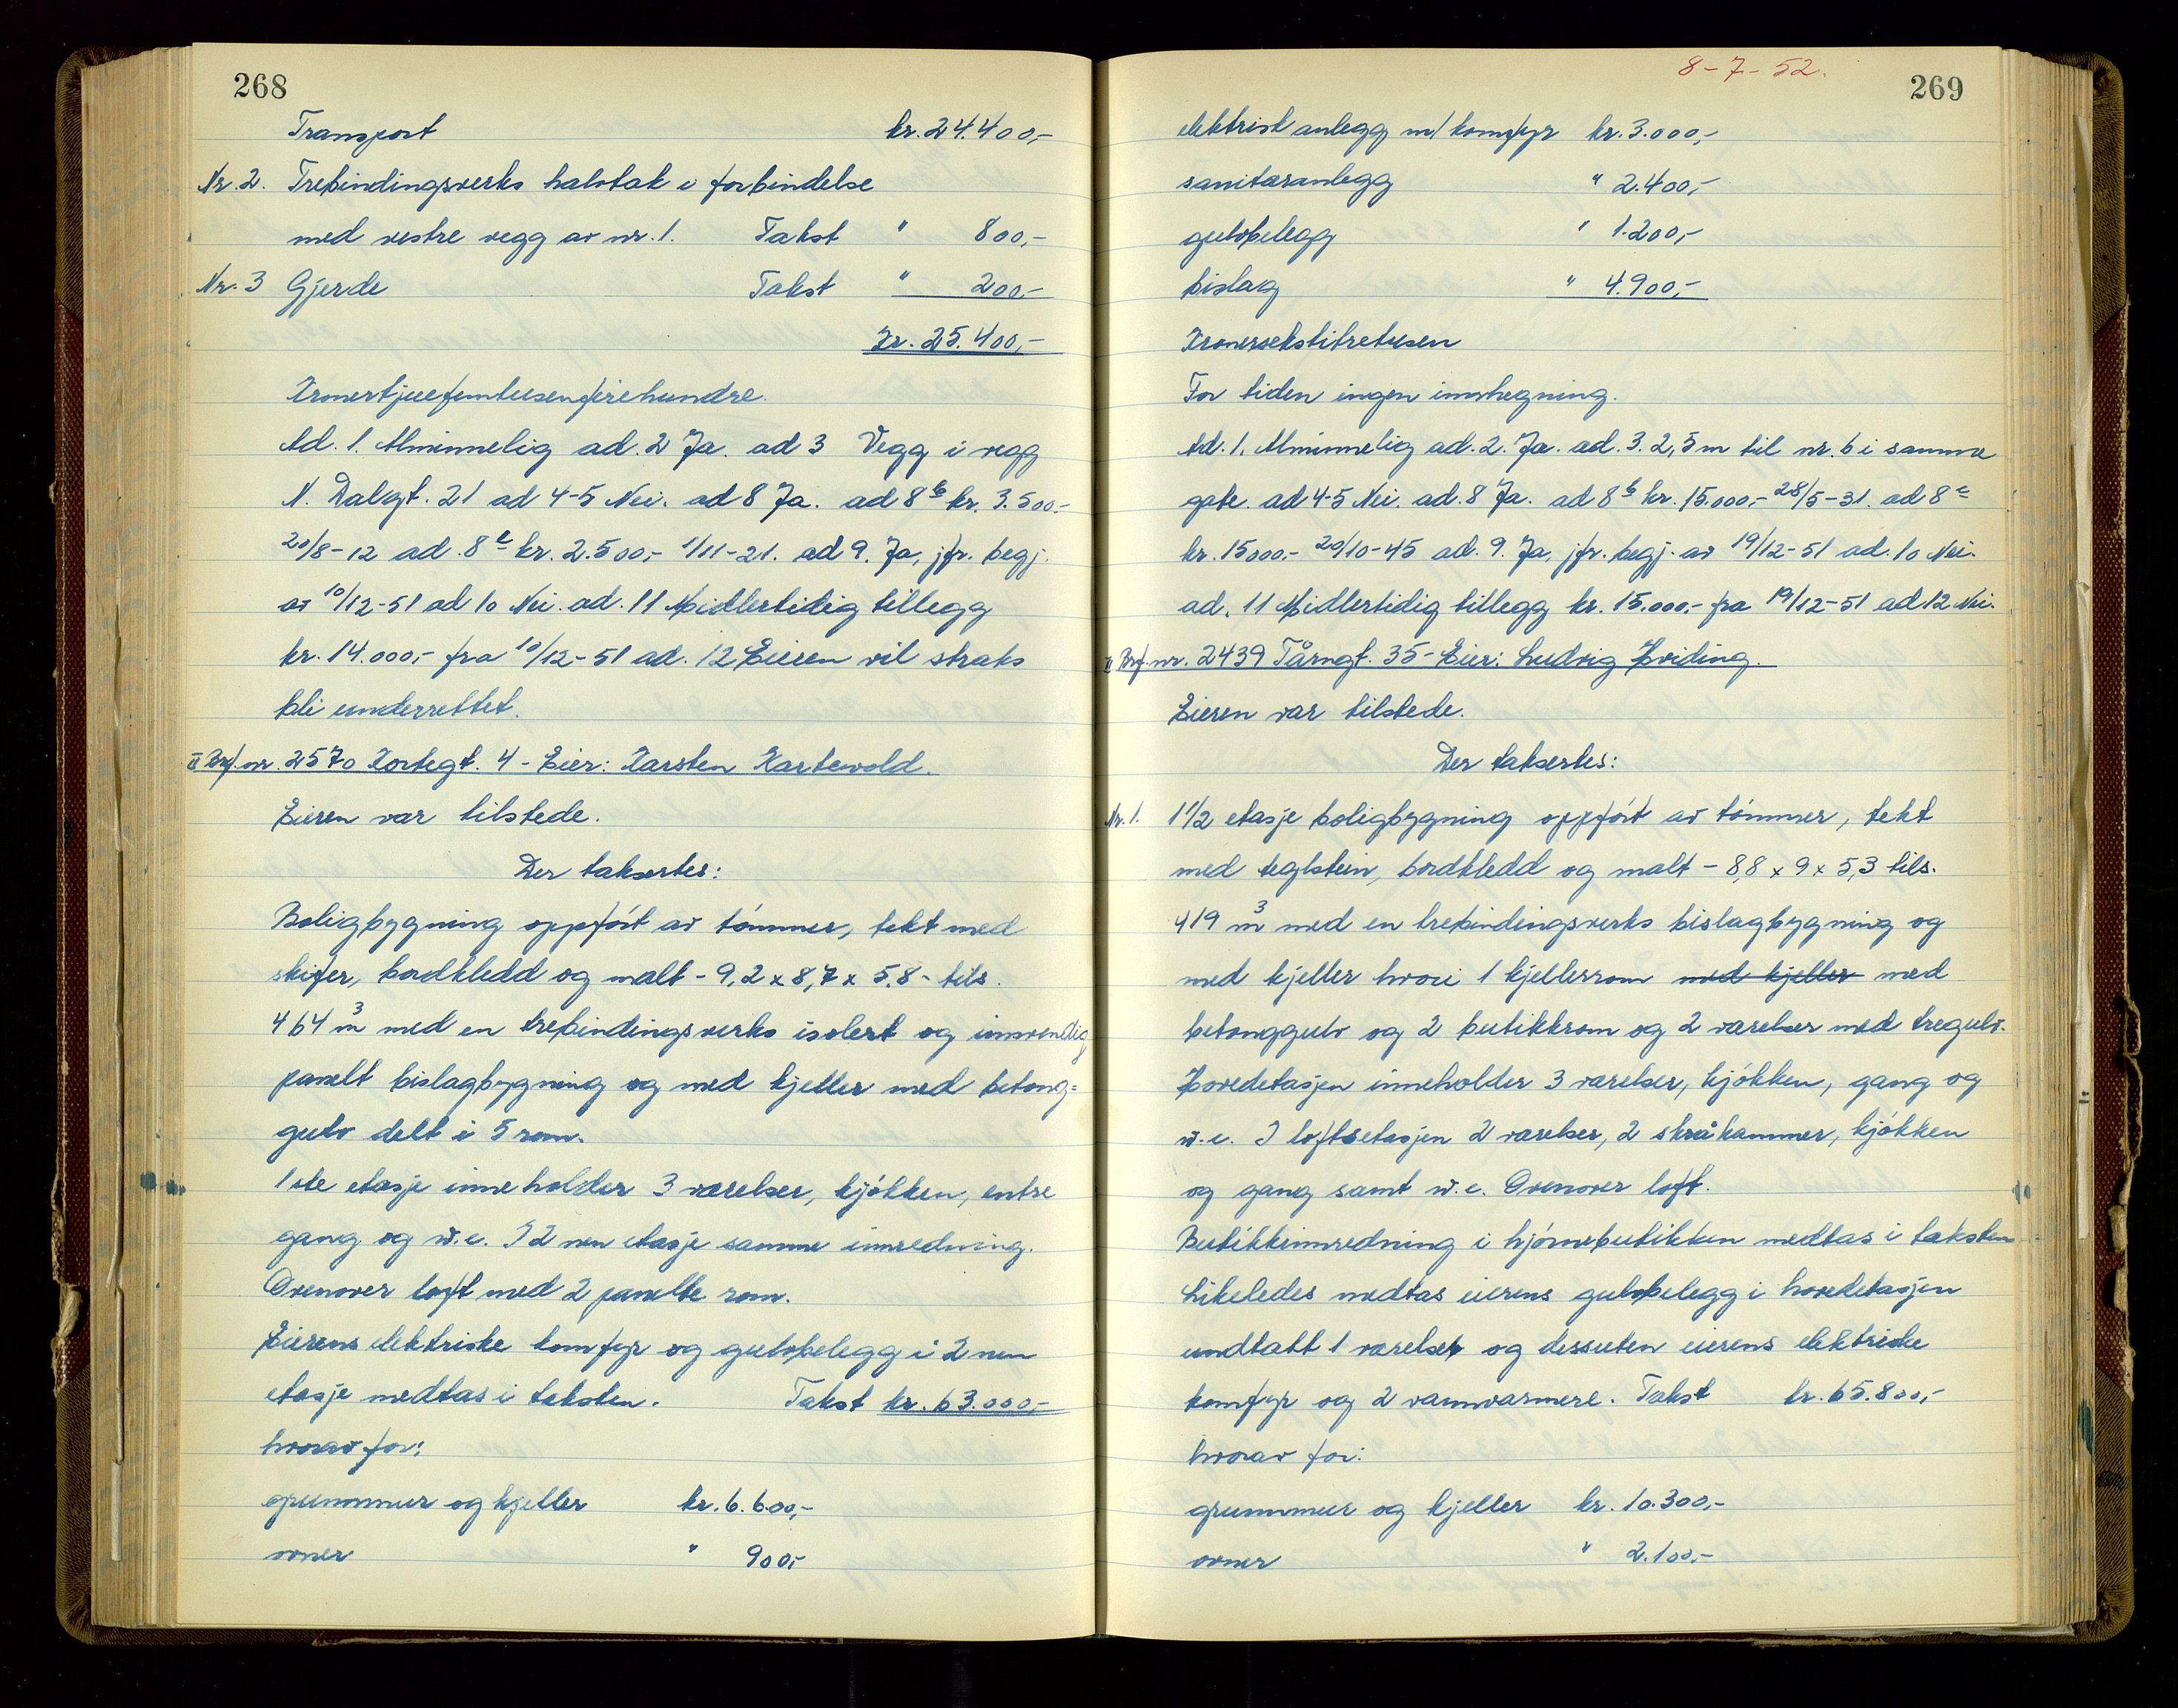 268
Transport kr. 24.400,-
Nr. 2. Trebindingsverks halvtak i forbindelse
med vestre vegg av nr. 1. Takst " 800,-
Nr. 3 Gjerde Takst " 200,-
Kr. 25.400,-
Kronertjuefemtusenfirehundre.
Ad. 1. Alminnelig ad. 2 Ja. ad 3 Vegg i vegg
N. Dalegt. 21 ad 4-5 Nei. ad 8 Ja. ad 8 b kr. 3.500.-
20/8-12 ad. 8 c kr. 2.500,- 1/11-21. ad 9. Ja, jfr. begj.
av 10/12-51 ad 10 Nei. ad. 11 Midlertidig tillegg
kr. 14.000,- fra 10/12-51 ad. 12 Eieren vil straks
bli underrettet.
Brf. nr. 2570 Kortegt. 4 - Eier: Karsten Kartevold.
Eieren var tilstede.
Der taksertes:
Boligbygning oppført av tømmer, tekt med
skifer, bordkledd og malt - 9,2 x 8,7 x 5,8 - tils.
464 m3 med en trebindingsverks isolert og innvendig
panelt bislagbygning og med kjeller med betong=
gulv delt i 5 rom.
1ste etasje inneholder 3 værelser, kjøkken, entre
gang og w.c. I 2nen etasje samme innredning.
Ovenover loft med 2 panelte rom.
Eierens elektriske komfyr og gulvbelegg i 2nen
etasje medtas i taksten. Takst kr. 63.000,-
hvorav for:
grunnmur og kjeller kr. 6.600,-
ovner " 900,-
8-7-52.
269
elektrisk anlegg m/ komfyr kr. 3.000,-
sanitæranlegg " 2.400,-
gulvbelegg " 1.200,-
bislag " 4.900,-
Kronersekstitretusen
For tiden ingen innhegning.
Ad. 1. Alminnelig ad. 2. Ja. ad. 3. 2,5 m til nr. 6 i samme
gate. ad 4-5 Nei. ad. 8 Ja. ad 8 b kr. 15.000,- 28/5-31. ad 8 c
kr. 15000.- 20/10-45 ad. 9. Ja, jfr. begj. av 19/12-51 ad. 10 Nei.
ad. 11 Midlertidig tillegg kr. 15.000.- fra 19/12-51 ad 12 Nei.
Brf. nr. 2439 Tårngt. 35 - Eier: Ludvig Hviding.
Eieren var tilstede.
Der taksertes:
Nr. 1. 1 1/2 etasje boligbygning oppført av tømmer, tekt
med teglstein, bordkledd og malt - 8,8 x 9 x 5,3 tils.
419 m3 med en trebindingsverks bislagbygning og
med kjeller hvori 1 kjellerrom med kjeller med
betonggulv og 2 butikkrom og 2 værelser med tregulv.
Hovedetasjen inneholder 3 værelser, kjøkken, gang og
w.c. I loftsetasjen 2 værelser, 2 skråkammer, kjøkken
og gang samt w.c. Ovenover loft.
Butikkinnredning i hjørnebutikken medtas i taksten
Likeledes medtas eierens gulvbelegg i hovedetasjen
undtatt 1 værelset og dessuten eierens elektriske
komfyr og 2 vannvarmere. Takst kr. 65.800,-
hvorav for:
grunnmur og kjeller kr. 10.300,-
ovner " 2.100.-